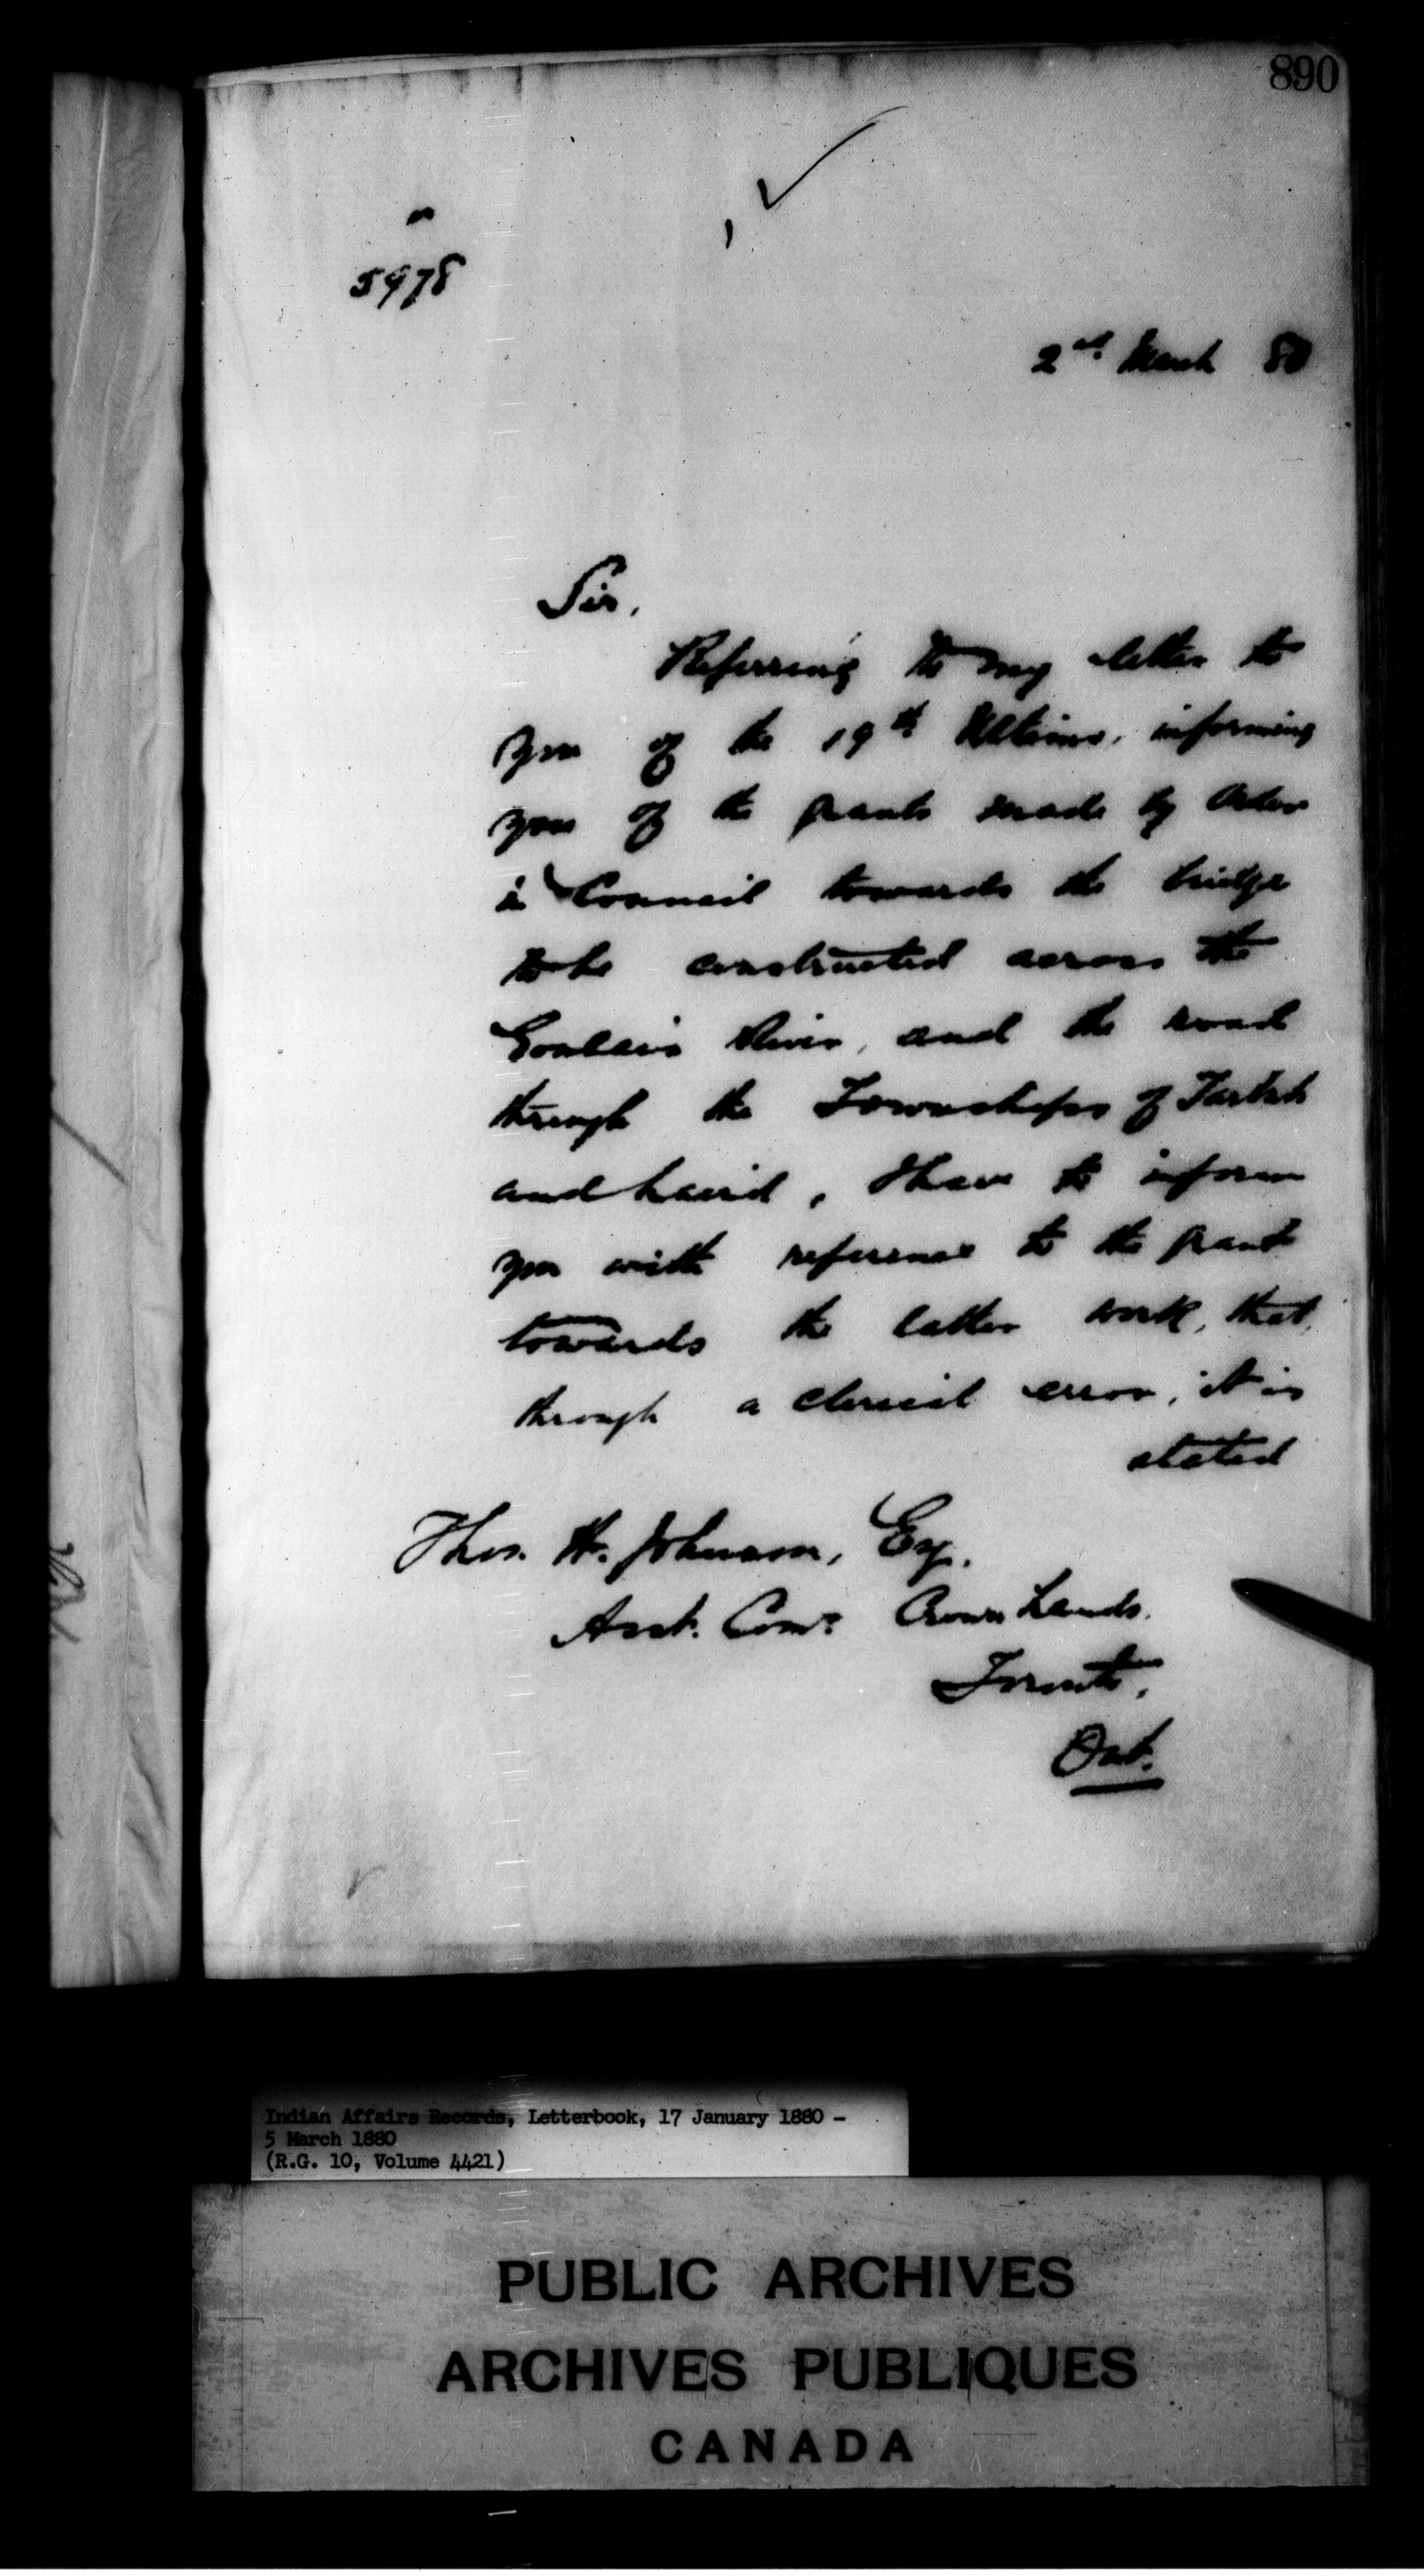 890
5978
2nd March 80
Sir,
Referring to my letter to
you of the 19th Ultimo, informing
you of the grants made by Order
in Council towards the bridge
to be constructed across the
Goulais River, and the road
through the Townships of Tarbutt
and Laird, I have to inform
you with reference to the grant
towards the latter work, that,
through a clerical error, it is
stated
Thos. H. Johnson, Esq.
Asst. Comr. Crown Lands.
Toronto,
Ont.
Indian Affairs Records, Letterbook, 17 January 1880 -
5 March 1880
(R.G. 10, Volume 4421)
PUBLIC ARCHIVES
ARCHIVES PUBLIQUES
CANADA